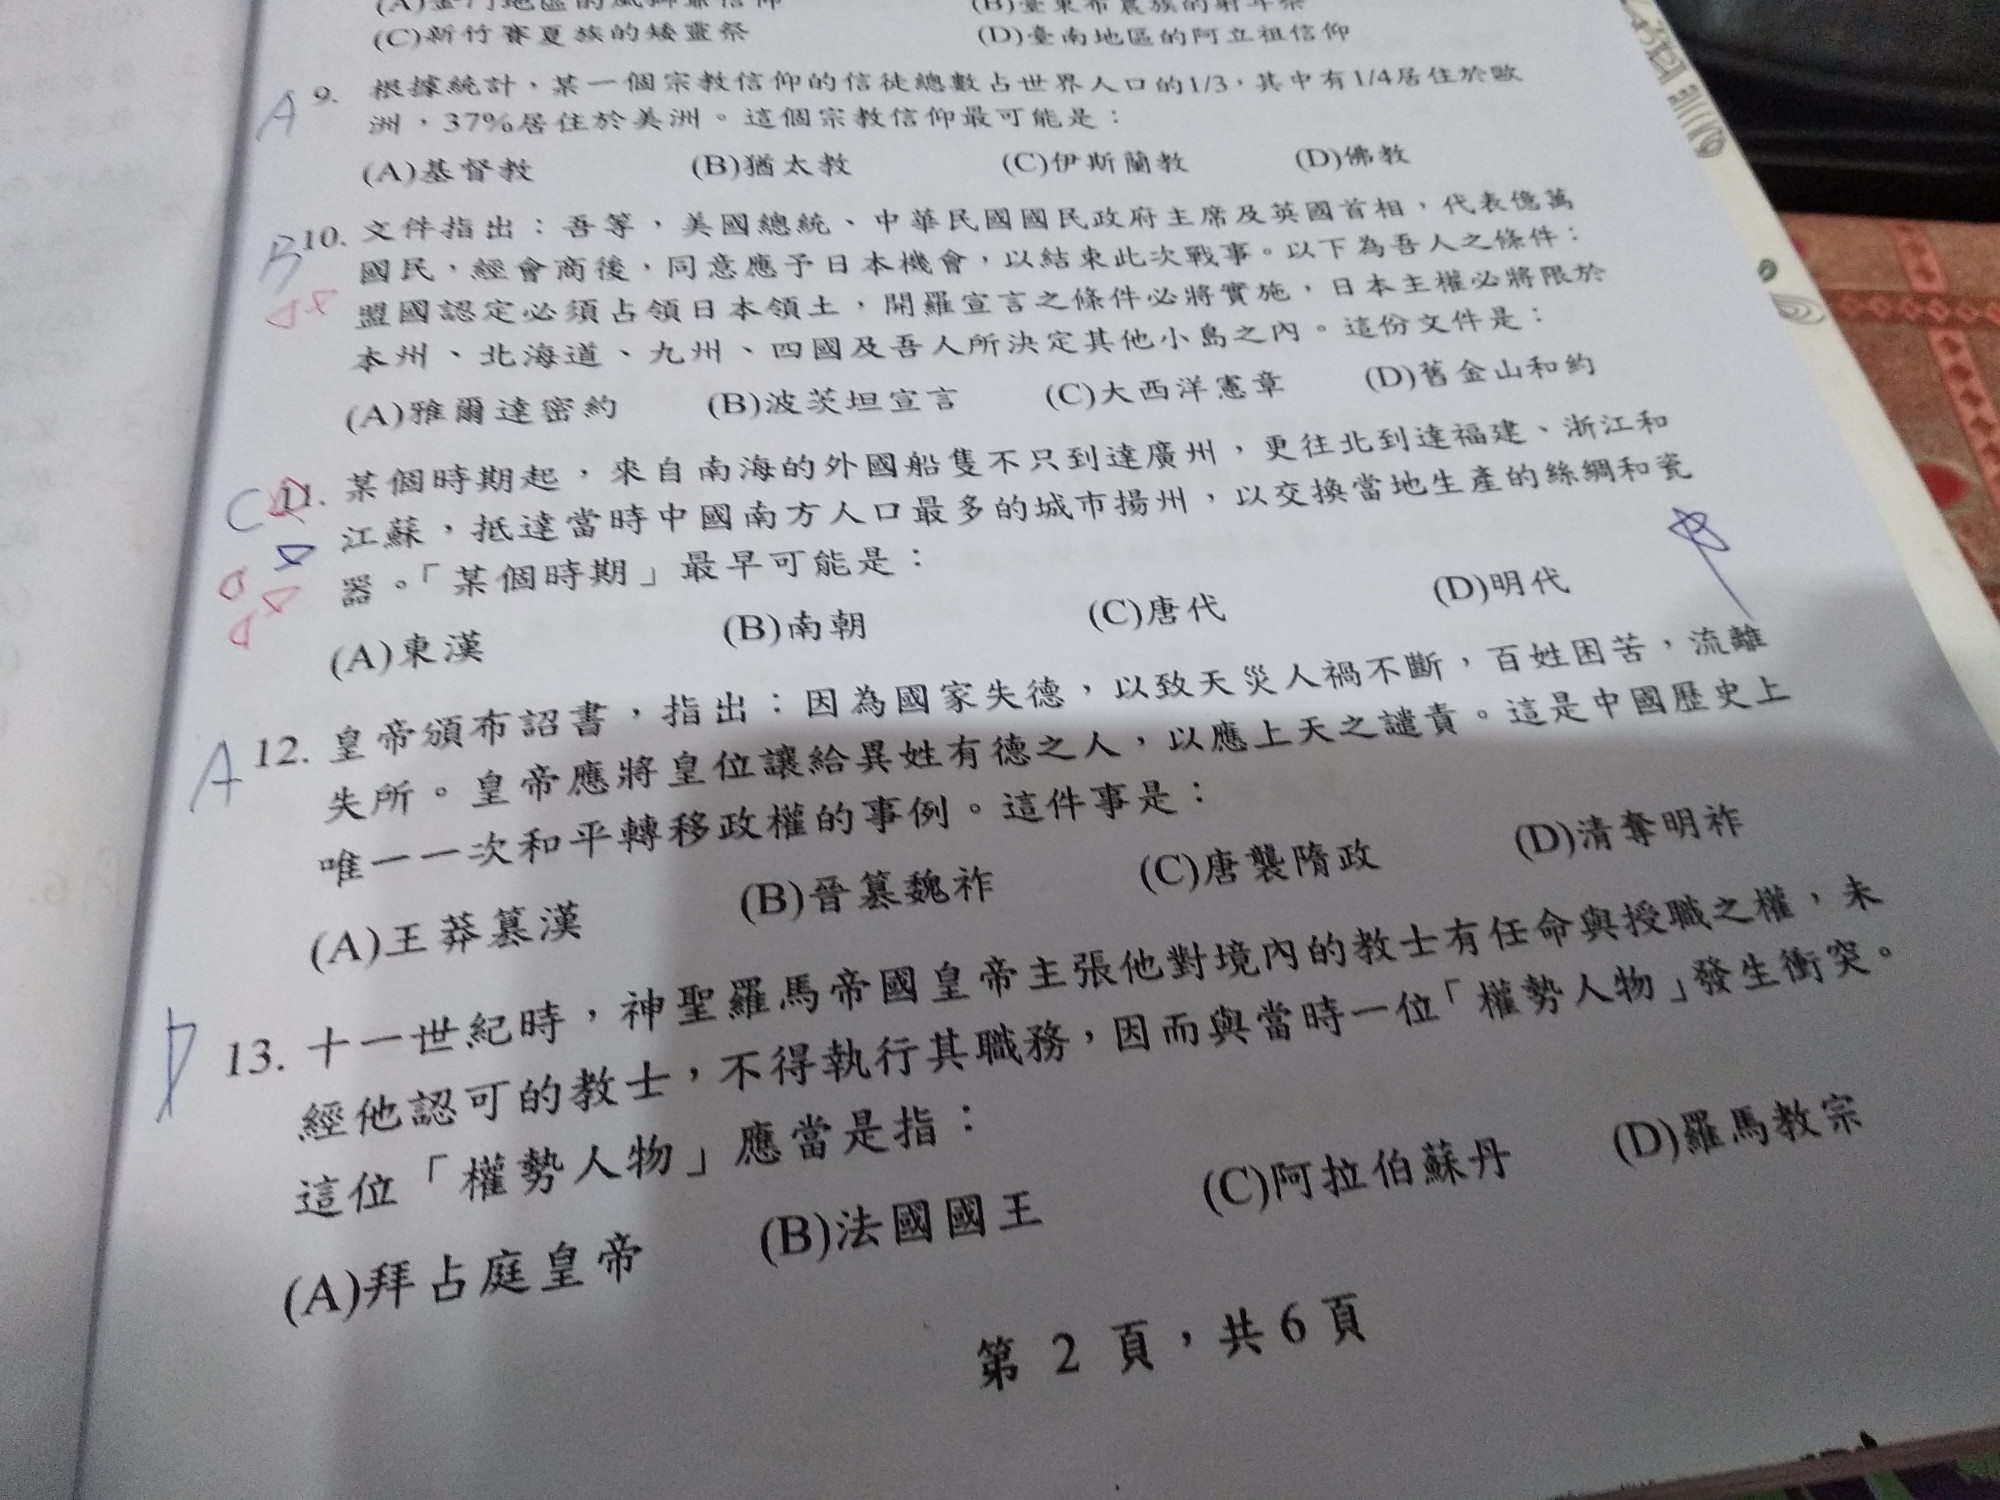 (C)新竹賽夏族的矮靈祭 (D)臺南地區的阿立祖信仰
A 9. 根據統計，某一個宗教信仰的信徒總數占世界人口的1/3，其中有1/4居住於歐
洲，37%居住於美洲。這個宗教信仰最可能是：
(A)基督教 (B)猶太教 (C)伊斯蘭教 (D)佛教
B 10. 文件指出：吾等，美國總統、中華民國國民政府主席及英國首相，代表億萬
國民，經會商後，同意應予日本機會，以結束此次戰事。以下為吾人之條件：
盟國認定必須占領日本領土，開羅宣言之條件必將實施，日本主權必將限於
本州、北海道、九州、四國及吾人所決定其他小島之內。這份文件是：
(A)雅爾達密約 (B)波茨坦宣言 (C)大西洋憲章 (D)舊金山和約
C 11. 某個時期起，來自南海的外國船隻不只到達廣州，更往北到達福建、浙江和
江蘇，抵達當時中國南方人口最多的城市揚州，以交換當地生產的絲綢和瓷
器。「某個時期」最早可能是：
(A)東漢 (B)南朝 (C)唐代 (D)明代
A 12. 皇帝頒布詔書，指出：因為國家失德，以致天災人禍不斷，百姓困苦，流離
失所。皇帝應將皇位讓給異姓有德之人，以應上天之譴責。這是中國歷史上
唯一一次和平轉移政權的事例。這件事是：
(A)王莽篡漢 (B)晉篡魏祚 (C)唐襲隋政 (D)清奪明祚
D 13. 十一世紀時，神聖羅馬帝國皇帝主張他對境內的教士有任命與授職之權，未
經他認可的教士，不得執行其職務，因而與當時一位「權勢人物」發生衝突。
這位「權勢人物」應當是指：
(A)拜占庭皇帝 (B)法國國王 (C)阿拉伯蘇丹 (D)羅馬教宗
第 2 頁，共 6 頁